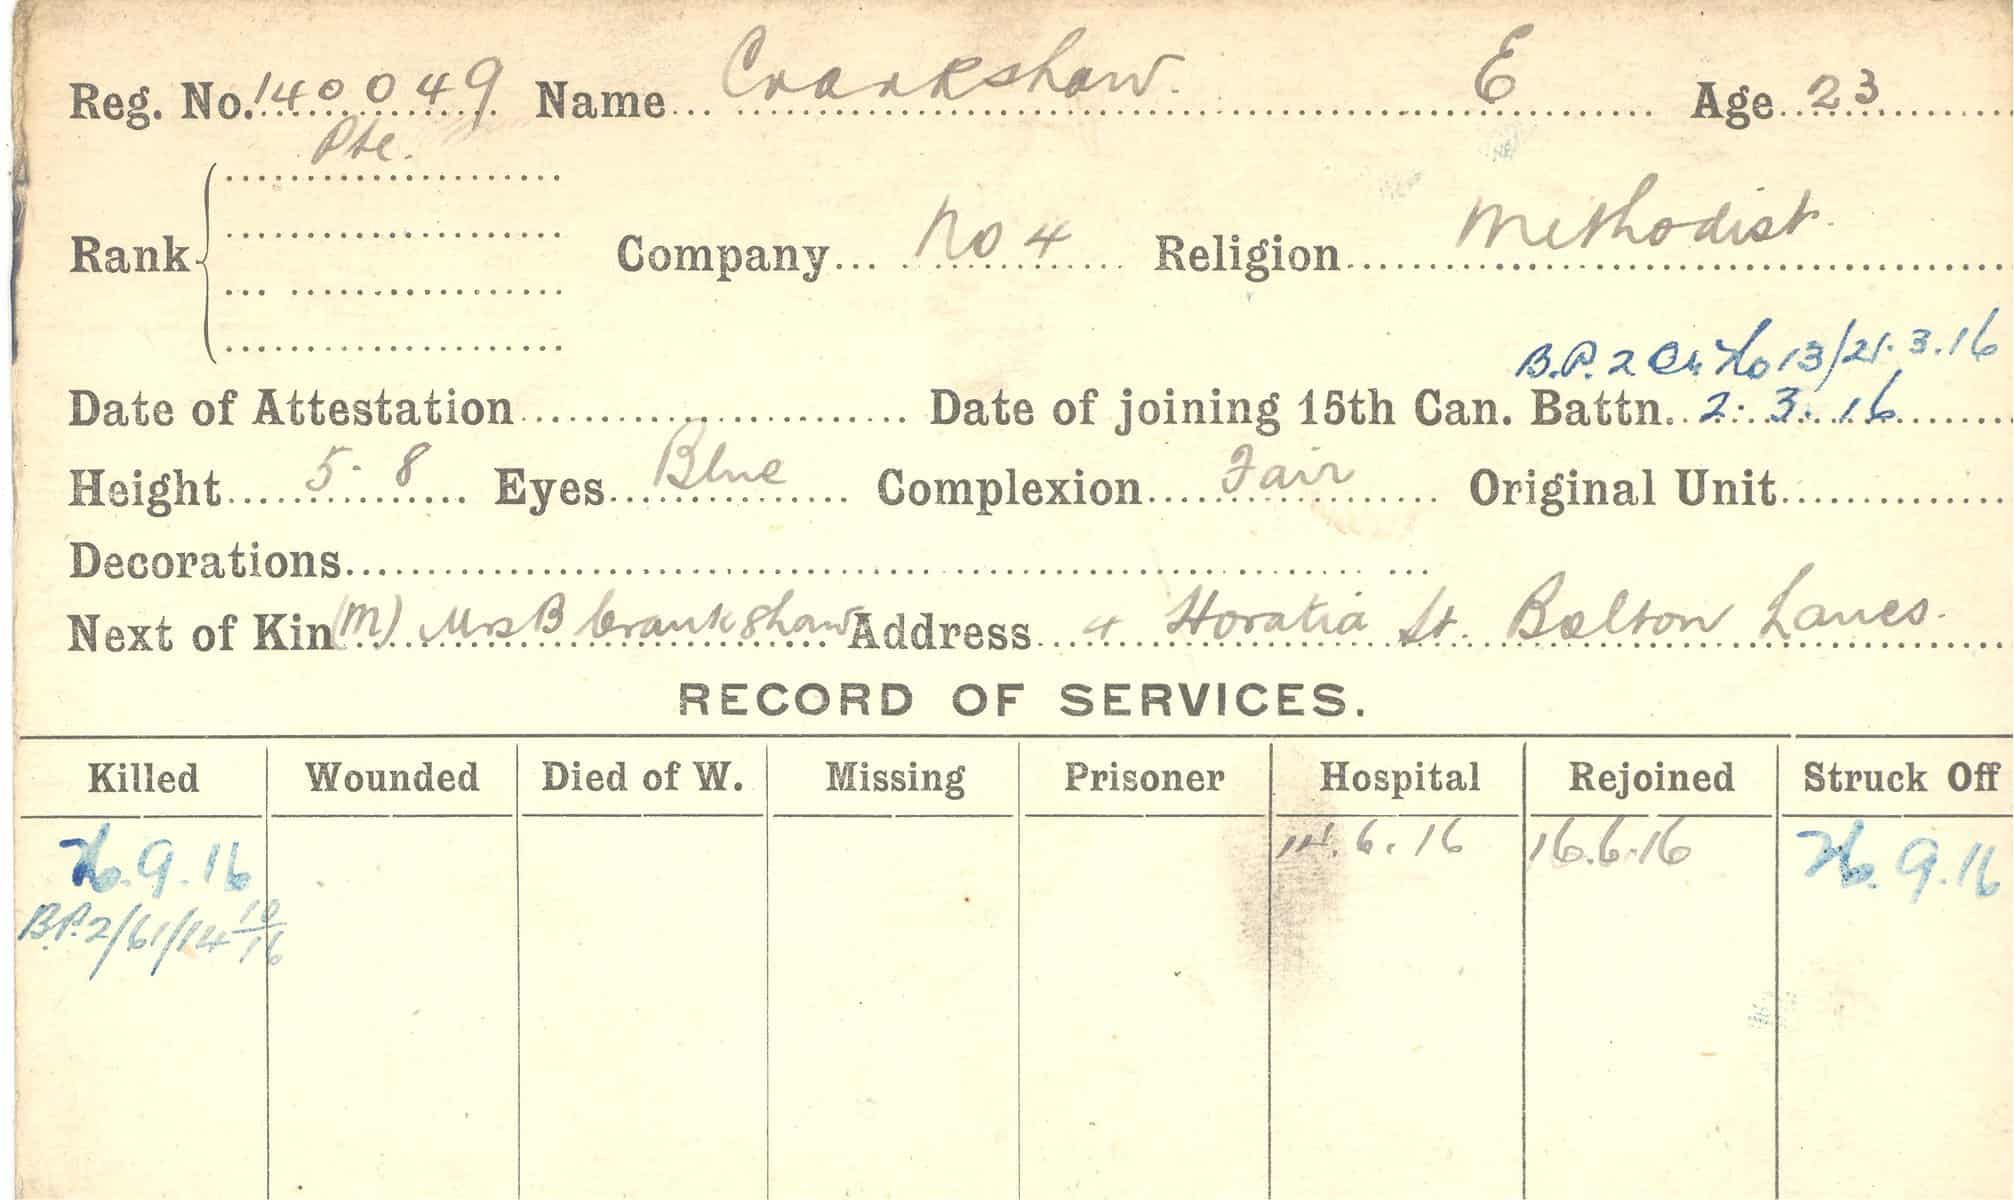 Reg. No. 140049 Name Crankshaw. E Age 23
Pte.
Rank Company No 4 Religion Methodist
B.P. 2 13/21.3.16
Date of Attestation Date of joining 15th Can. Battn. 2. 3. 16
Height 5. 8 Eyes Blue Complexion Fair Original Unit
Decorations
Next of Kin (M) Mrs B Crankshaw Address 4 Horatia St. Bolton Lancs.
RECORD OF SERVICES.
Killed Wounded Died of W. Missing Prisoner Hospital Rejoined Struck Off
26.9.16 6.16 16.6.16 26.9.16
B.P.2/61/14 10/16